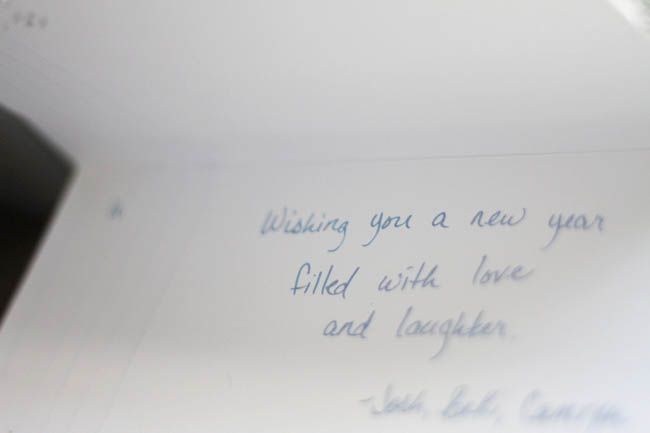 Wishing you a new year
filled with love
and laughter.
-Josh,